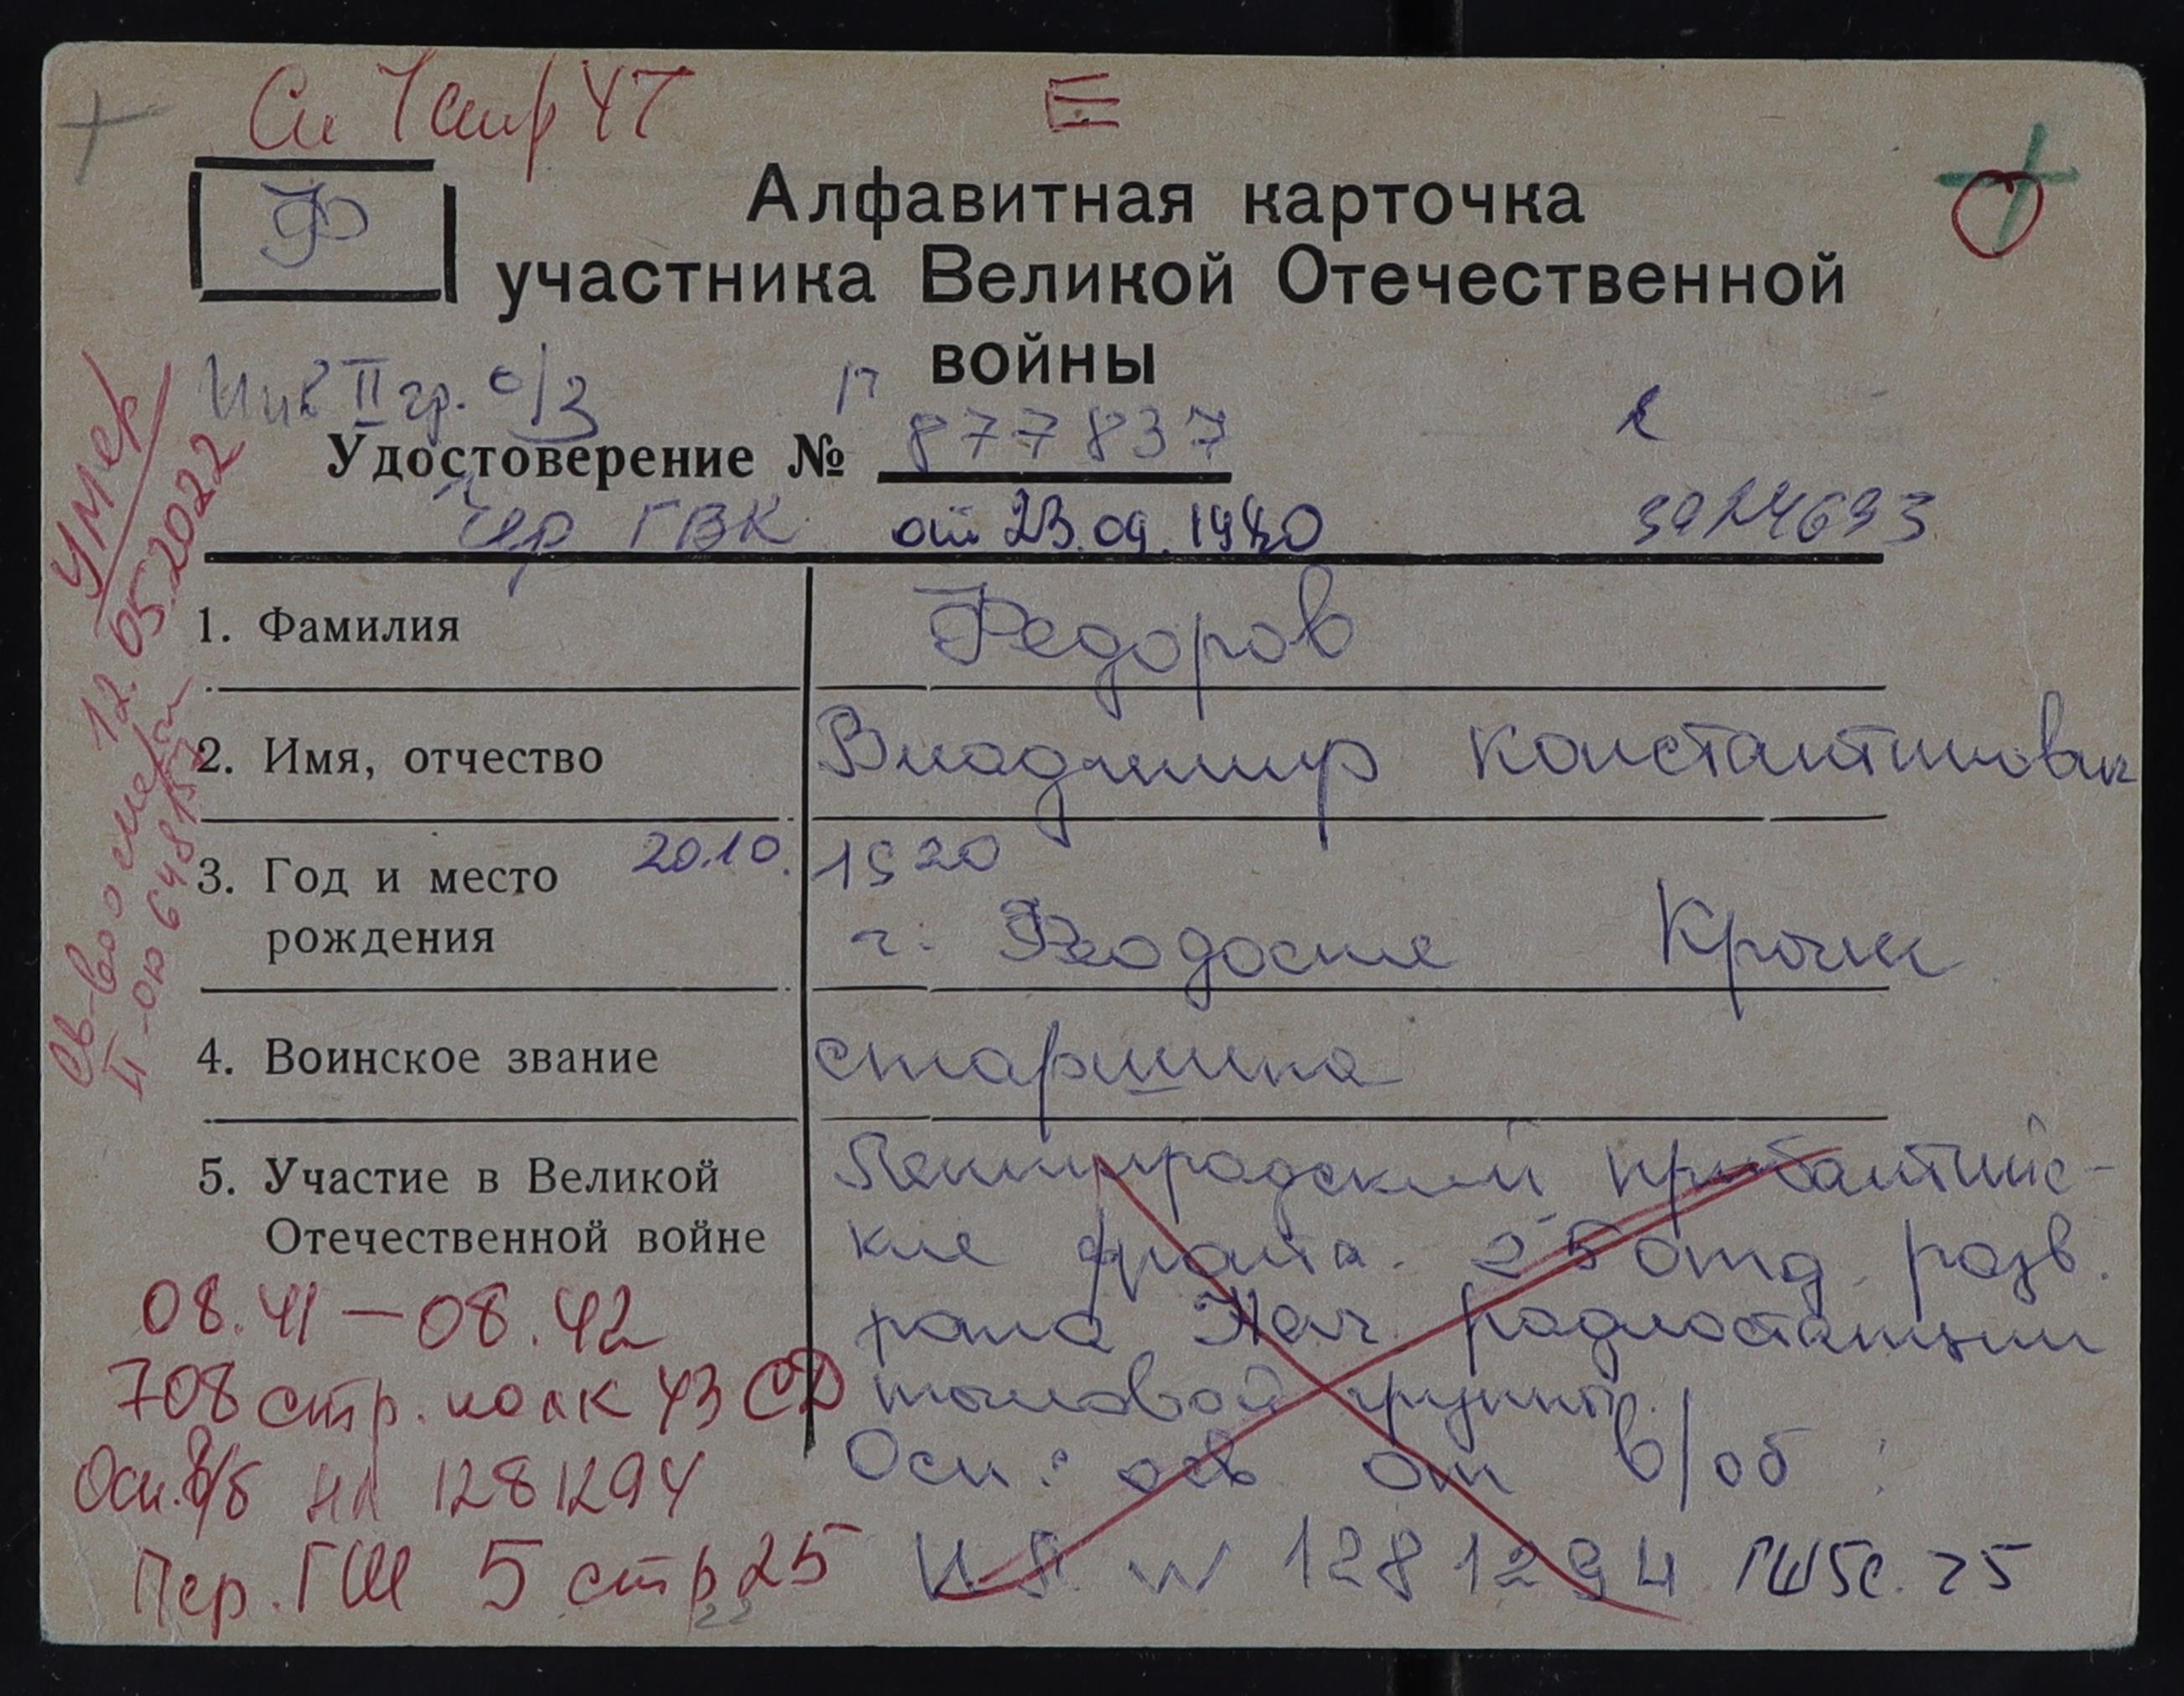 Сп 1 стр 47
Ф
Алфавитная карточка
участника Великой Отечественной
войны
Инв II гр. о/з
П
Удостоверение № 877837
Чер ГВК от 23.09.1980
3924693
Умер
12.05.2022
Св-во о смерти
II-ОЮ
1. Фамилия Федоров
2. Имя, отчество Владимир Константинович
3. Год и место 20.10. 1920
рождения г. Феодосия Крым
4. Воинское звание старшина
5. Участие в Великой Ленинградский Прибалтийс-
Отечественной войне кие фронта. 25 отд. разв.
08.41 — 08.42 рота Нач. радиостанции
708 стр. полк 43 СД тыловой группы.
Осн. в/б НЛ 1281294 Осн.: осв. от в/об:
Пер. ГШ 5 стр 25 № 1281294 ГШ5с. 25
22